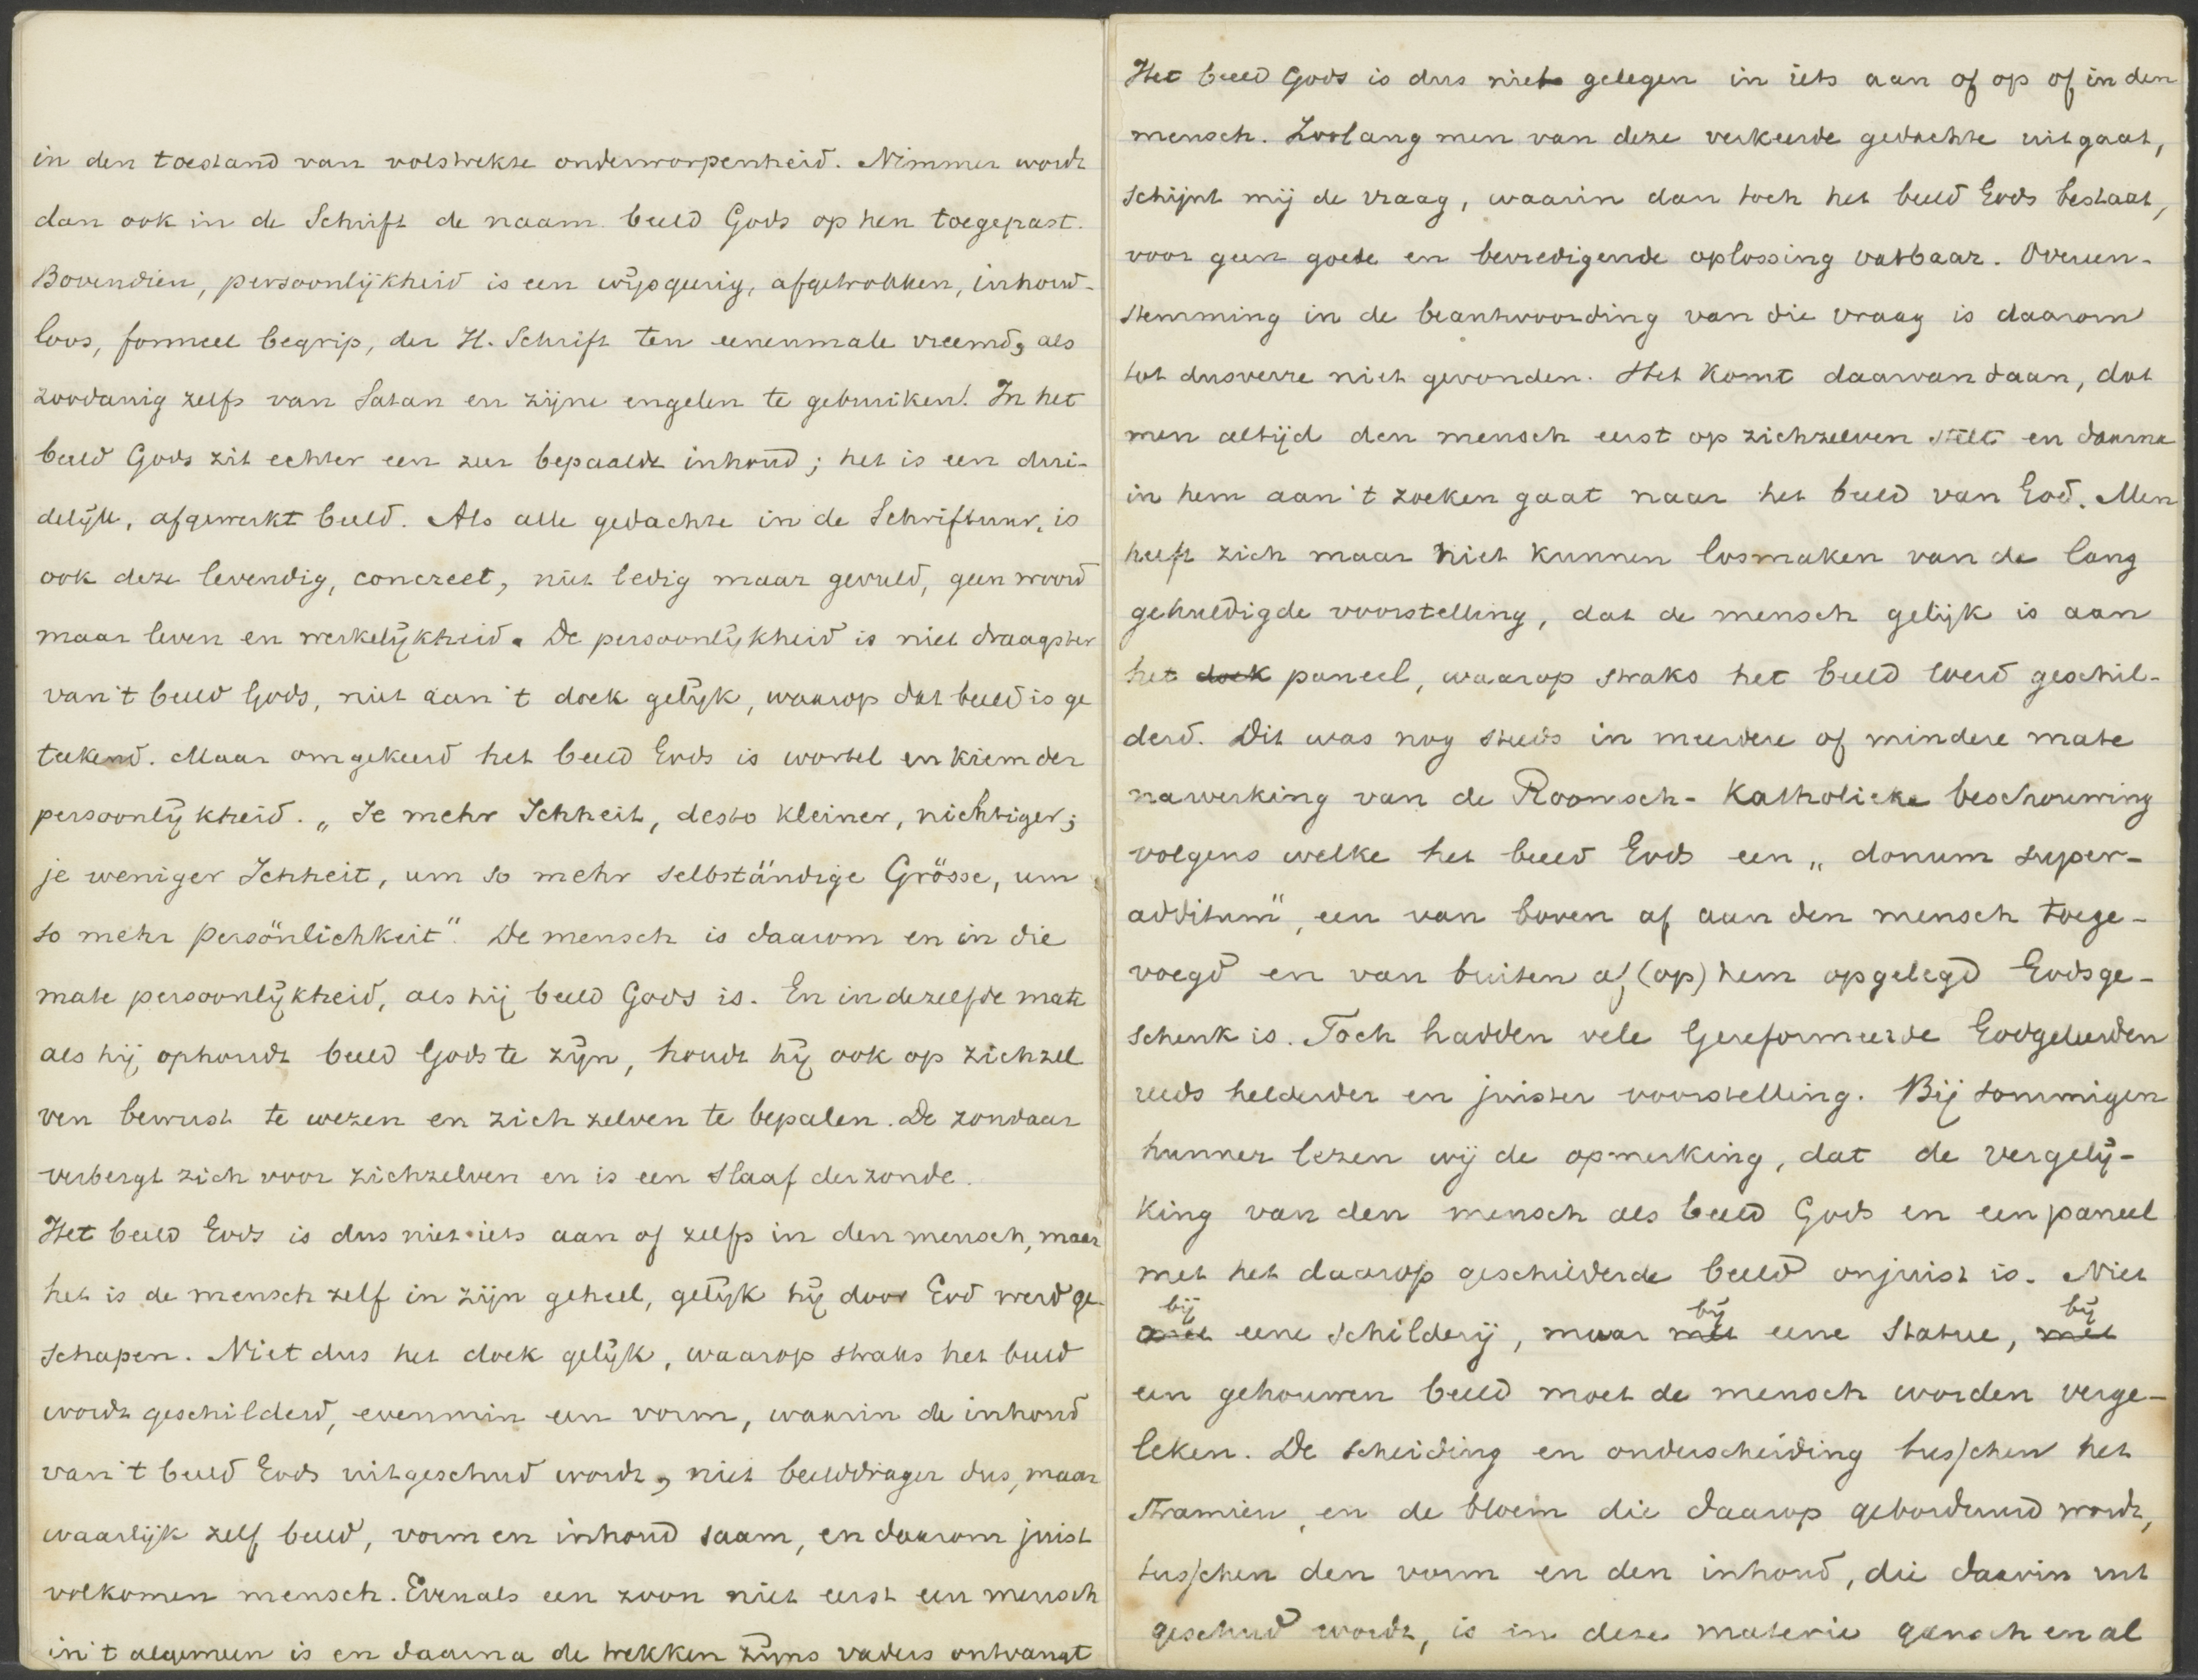 in den toestand van volstrekte onderworpenheid. Nimmer wordt
dan ook in de Schrift de naam beeld Gods op hen toegepast.
Bovendien, persoonlijkheid is een wijsgeerig, afgetrokken, inhoud-
loos, formeel begrip, der H. Schrift ten eenenmale vreemd, als
zoodanig zelfs van Satan en zijne engelen te gebruiken. In het
beeld Gods zit echter een zeer bepaalde inhoud; het is een dui-
delijk, afgewerkt beeld. Als alle gedachte in de Schriftuur, is
ook deze levendig, concreet, niet ledig maar gevuld, geen woord
maar leven en werkelijkheid. De persoonlijkheid is niet draagster
van 't beeld Gods, niet aan 't doek gelijk, waarop dat beeld is ge
teekend. Maar omgekeerd het beeld Gods is wortel en kiem der
persoonlijkheid. „Je mehr Ichheit, desto kleiner, nichtiger;
je weniger Ichheit, um so mehr selbständige Grösse, um
so mehr persönlichkeit". De mensch is daarom en in die
mate persoonlijkheid, als hij beeld Gods is. En in dezelfde mate
als hij ophoudt beeld Gods te zijn, houdt hij ook op zichzel
ven bewust te wezen en zich zelven te bepalen. De zondaar
verbergt zich voor zichzelven en is een slaaf der zonde.
Het beeld Gods is dus niet iets aan of zelfs in den mensch, maar
het is de mensch zelf in zijn geheel, gelijk hij door God werd ge-
schapen. Niet dus het doek gelijk, waarop straks het beeld
wordt geschilderd, evenmin een vorm, waarin de inhoud
van 't beeld Gods uitgeschud wordt, niet beelddrager dus, maar
waarlijk zelf beeld, vorm en inhoud saam, en daarom juist
volkomen mensch. Evenals een zoon niet eerst een mensch
in 't algemeen is en daarna de trekken zijns vaders ontvangt
Het beeld Gods is dus niet gelegen in iets aan of op of in den
mensch. Zoolang men van deze verkeerde gedachte uitgaat,
schijnt mij de vraag, waarin dan toch het beeld Gods bestaat,
voor geen goede en bevredigende oplossing vatbaar. Overeen-
stemming in de beantwoording van die vraag is daarom
tot dusverre niet gevonden. Het komt daarvandaan, dat
men altijd den mensch eerst op zichzelven stelt en daarna
in hem aan 't zoeken gaat naar het beeld van God. Men
heeft zich maar niet kunnen losmaken van de lang
gehuldigde voorstelling, dat de mensch gelijk is aan
het doek paneel, waarop straks het beeld werd geschil-
derd. Dit was nog steeds in meerdere of mindere mate
nawerking van de Roomsch-Katholieke beschouwing
volgens welke het beeld Gods een „donum super-
additum", een van boven af aan den mensch toege-
voegd en van buiten af (op) hem opgelegd Godsge-
schenk is. Toch hadden vele Gereformeerde Godgeleerden
reeds helderder en juister voorstelling. Bij sommigen
hunner lezen wij de opmerking, dat de vergelij-
king van den mensch als beeld Gods en een paneel
met het daarop geschilderde beeld onjuist is. Niet
bij bij bij
met eene schilderij, maar met eene statue, met
een gehouwen beeld moet de mensch worden verge-
leken. De scheiding en onderscheiding tusschen het
stramien, en de bloem die daarop geborduurd wordt,
tusschen den vorm en den inhoud, die daarin uit
geschud wordt, is in deze materie gansch en al